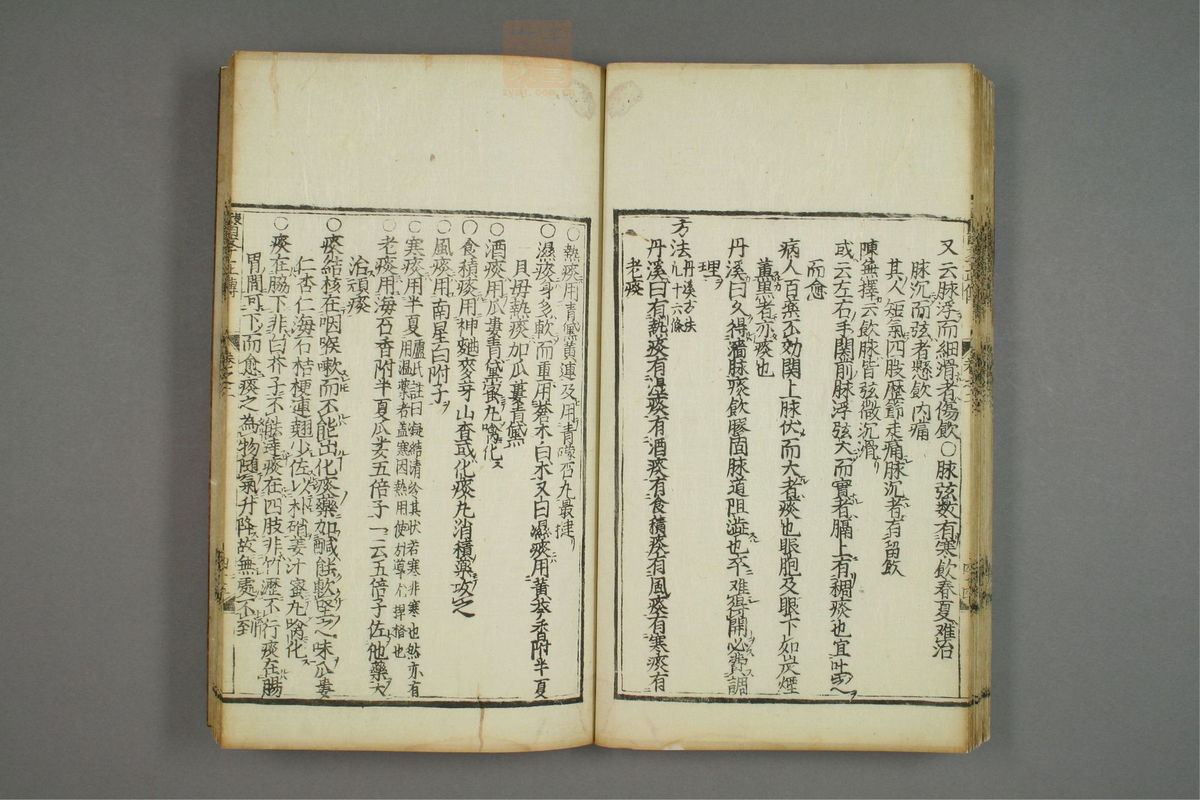 又云脉浮而細滑者傷飲○脉弦數有寒飲春夏难治
脉沉而弦者懸飲内痛
其人短氣四肢歷節走痛脉沉者有留飲
陳無擇云飲脉皆弦微沉滑
或云左右手関前脉浮弦大而實者膈上有稠痰也宜吐之
而愈
病人百藥不効関上脉伏而大者痰也眼胞及眼下如炭煙
薫黒者亦痰也
丹溪曰久得濇脉痰飲膠固脉道阻澁也卒难得開必費調
理
方法丹溪方法凡十六條
丹溪曰有熱痰有湿痰有酒痰有食積痰有風痰有寒痰有
老痰
○熱痰用青黛黄連及用青礞石丸最捷
○濕痰身多軟而重用蒼朮白朮又曰濕痰用黄芩香附半夏
貝母熱痰加瓜蔞青黛
○酒痰用瓜蔞青黛蜜丸噙化
○食積痰用神麯麥芽山査或化痰丸消積藥攻之
○風痰用南星白附子
○寒痰用半夏盧氏註曰凝結清冷其狀若寒非寒也然亦有用温藥者盖寒因熱用使引導捍格也
○老痰用海石香附半夏瓜蔞五倍子一云五倍子佐他藥大
治頑痰
○痰結核在咽喉嗽而不能出化痰藥加鹹能軟堅之味瓜蔞
仁杏仁海石桔梗連翹少佐以朴硝姜汁蜜丸噙化
○痰在脇下非白芥子不能達痰在四肢非竹瀝不行痰在腸
胃間可下而愈痰之為物随氣升降故無處不到